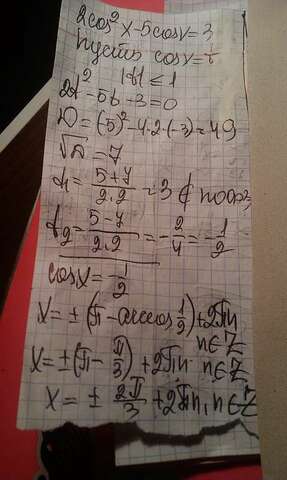 2cos²x-5cosx=3
пусть cosx=t
|t| ≤ 1
2t²-5t-3=0
D=(-5)²-4·2·(-3)=49
√D=7
t₁=(5+7)/(2·2)=3 ∉
t₂=(5-7)/(2·2)=-2/4=-1/2
cosx=-1/2
x=±(π-arccos 1/2)+2πn
n∈Z
x=±(π-π/3)+2πn n∈Z
x=± 2π/3 +2πn, n∈Z